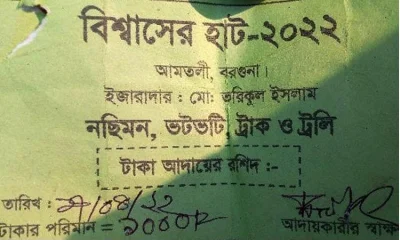 বিশ্বাসের হাট-২০২২
আমতলী, বরগুনা।
ইজারাদার : মো: তরিকুল ইসলাম
নছিমন, ভটভটি, ট্রাক ও ট্রলি
টাকা আদায়ের রশিদ :-
তারিখ : /০৪/২২
টাকার পরিমান =
আদায়কারীর স্বাক্ষ